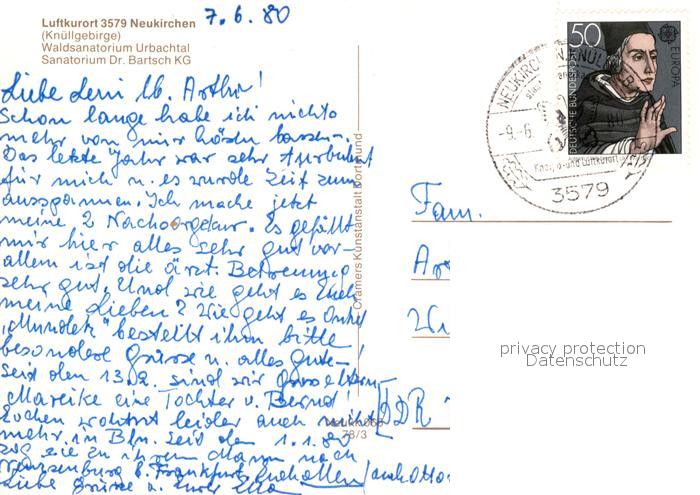 7.6.80
Luftkurort 3579 Neukirchen
(Knüllgebirge)
Waldsanatorium Urbachtal
Sanatorium Dr. Bartsch KG
Liebe Leni u. Arthur!
Schon lange habe ich nichts
mehr von mir hören lassen.
Das letzte Jahr war sehr turbulent
für mich u. es wurde Zeit zum
ausspannen. Ich mache jetzt
meine 2. Nachsorgekur. Es gefällt
mir hier alles sehr gut vor-
allem ist die ärzt. Betreuung
sehr gut. Und wie geht es Euch
meine Lieben? Wie geht es Onkel
bestellt ihm bitte
besondere Grüsse u. alles Gute!
Seit den 13.2. sind wir Grosseltern
Mareike eine Tochter v. Bernd!
wohnt leider auch nicht
mehr in Bln. Seit den 1.1.80
zog sie zu ihrem Mann nach
b. Frankfurt
Liebe Grüsse u.
Cramers Kunstanstalt Dortmund
78/3
50
DEUTSCHE BUNDESPOST
EUROPA
NEUKIRCHEN, KNÜLL
-9.-6.
Kneipp- und Luftkurort
3579
Fam.
DDR
privacy protection
Datenschutz